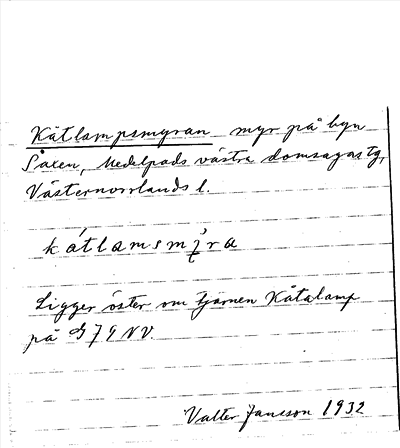 Kåtlampsmyran myr på byn
Saxen, Medelpads västra domsagas tg,
Västernorrlands l.
kátlamsmýra
Ligger öster om tjärnen Kåtalamp
på G79 NV.
Valter Jansson 1932